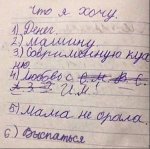 Что я хочу.
1) Денег.
2) Машину.
3) Современную кух
ню
4) Любовь с
Им!
5) Мама не орала.
6.) Выспаться